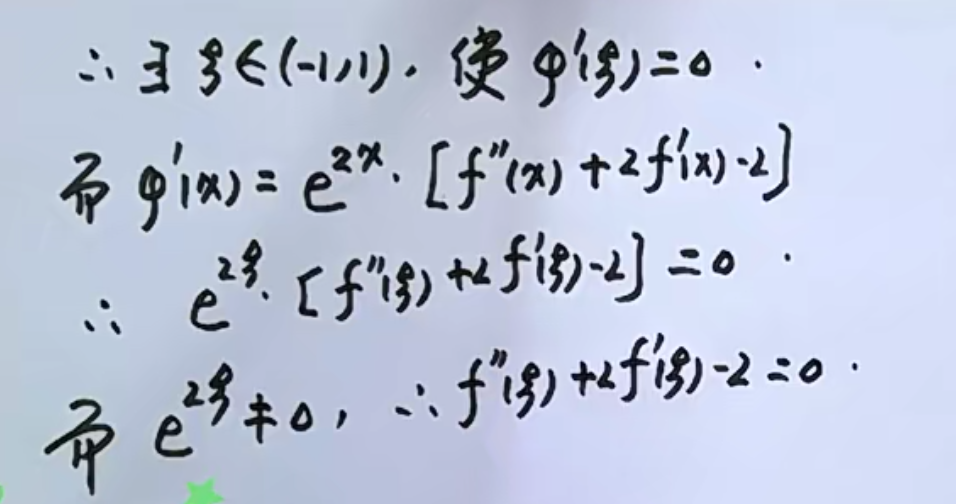 ∴ ∃ ξ∈(-1,1), 使 φ'(ξ)=0.
而 φ'(x)=e^{2x}·[f''(x)+2f'(x)-2]
∴ e^{2ξ}·[f''(ξ)+2f'(ξ)-2]=0.
而 e^{2ξ}≠0, ∴ f''(ξ)+2f'(ξ)-2=0.